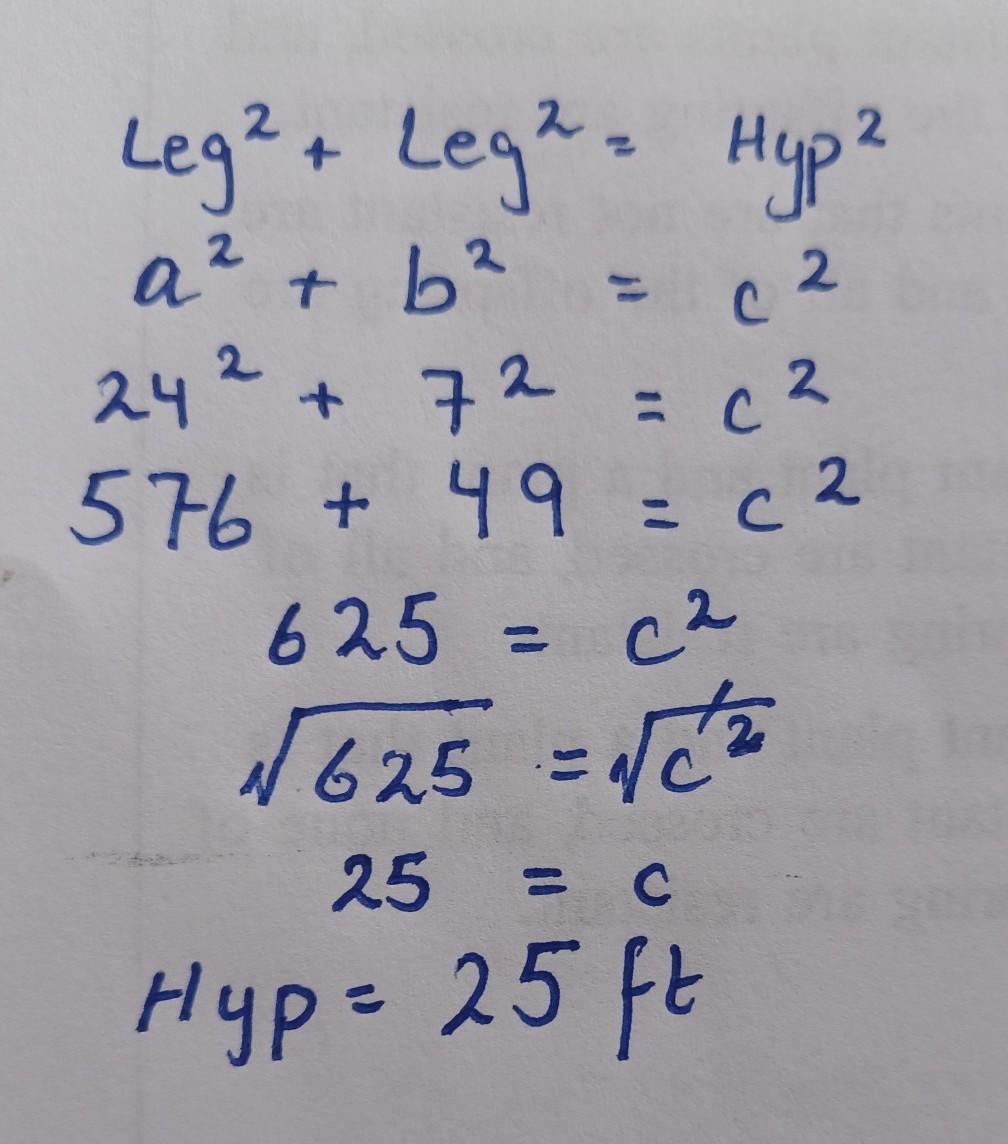 Leg² + Leg² = Hyp²
a² + b² = c²
24² + 7² = c²
576 + 49 = c²
625 = c²
√625 = √c²
25 = c
Hyp = 25 ft